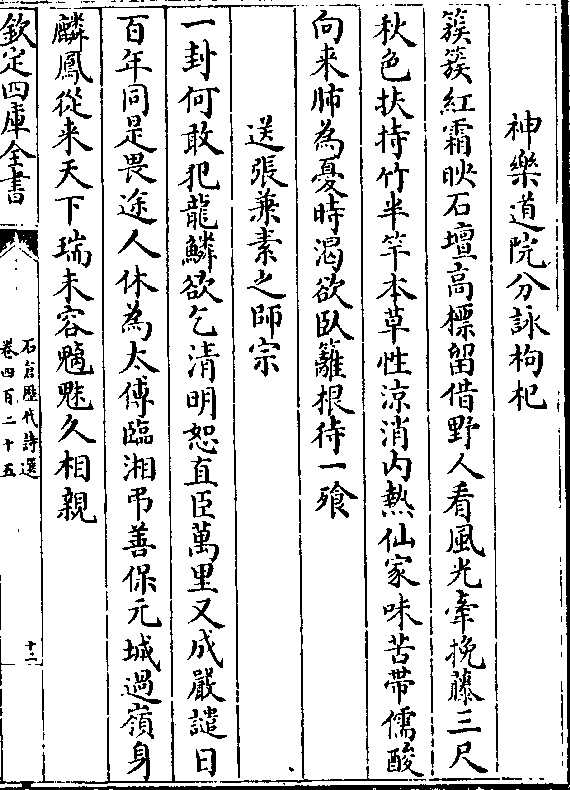 神樂道院分詠枸杞
簇簇紅霜映石壇高標留借野人看風光牽挽藤三尺
秋色扶持竹半竿本草性涼消内熱仙家味苦帶儒酸
向来肺為憂時渴欲臥籬根待一飱
送張兼素之師宗
一封何敢犯龍鱗欲乞清明恕直臣萬里又成嚴譴日
百年同是畏途人休為太傅臨湘弔善保元城過嶺身
麟鳳從来天下瑞未容魑魅久相親
欽定四庫全書
石倉歷代詩選
卷四百二十五
十二